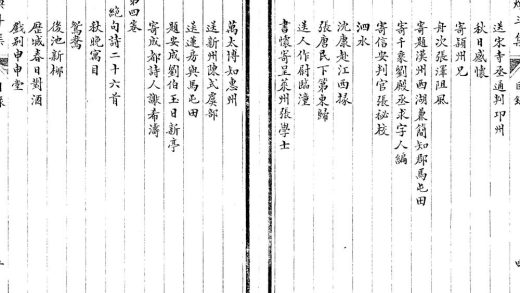 送宋寺丞通判邛州
秋日感懷
寄潁州兄
舟次張澤阻風
寄題漢州西湖兼簡知郡馬屯田
寄千乘劉殿丞求字人編
寄信安判官張秘校
泗水
沈康赴江西掾
張唐民下第東歸
送人作尉臨潼
書懷寄呈萊州張學士
萬太博知惠州
送新州陳式虞部
送蓬房與馬屯田
題安成劉伯玉日新亭
寄成都詩人譙希濤
第四卷
絶句詩二十六首
秋晚寓目
鴛鴦
後池新柳
歷城春日對酒
戲別申申堂